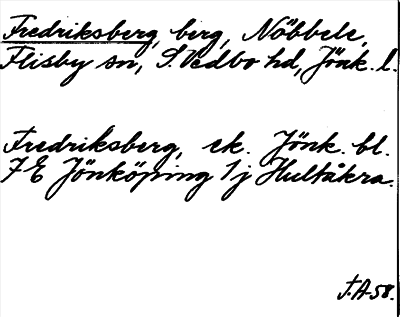 Fredriksberg, berg, Nöbbele,
Flisby sn, S. Vedbo hd, Jönk. l.
Fredriksberg, ek. Jönk. bl.
7E Jönköping 1j Hultåkra.
J.A-58.